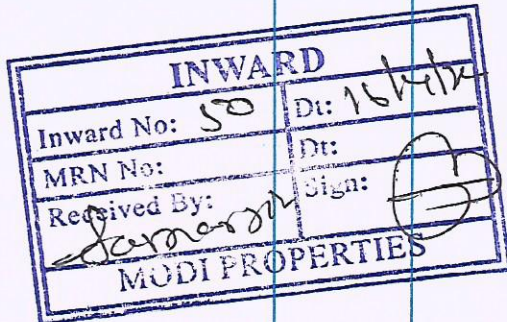 INWARD
Inward No: 50 Dt: 16/4/24
MRN No: Dt:
Received By: Sign:
MODI PROPERTIES